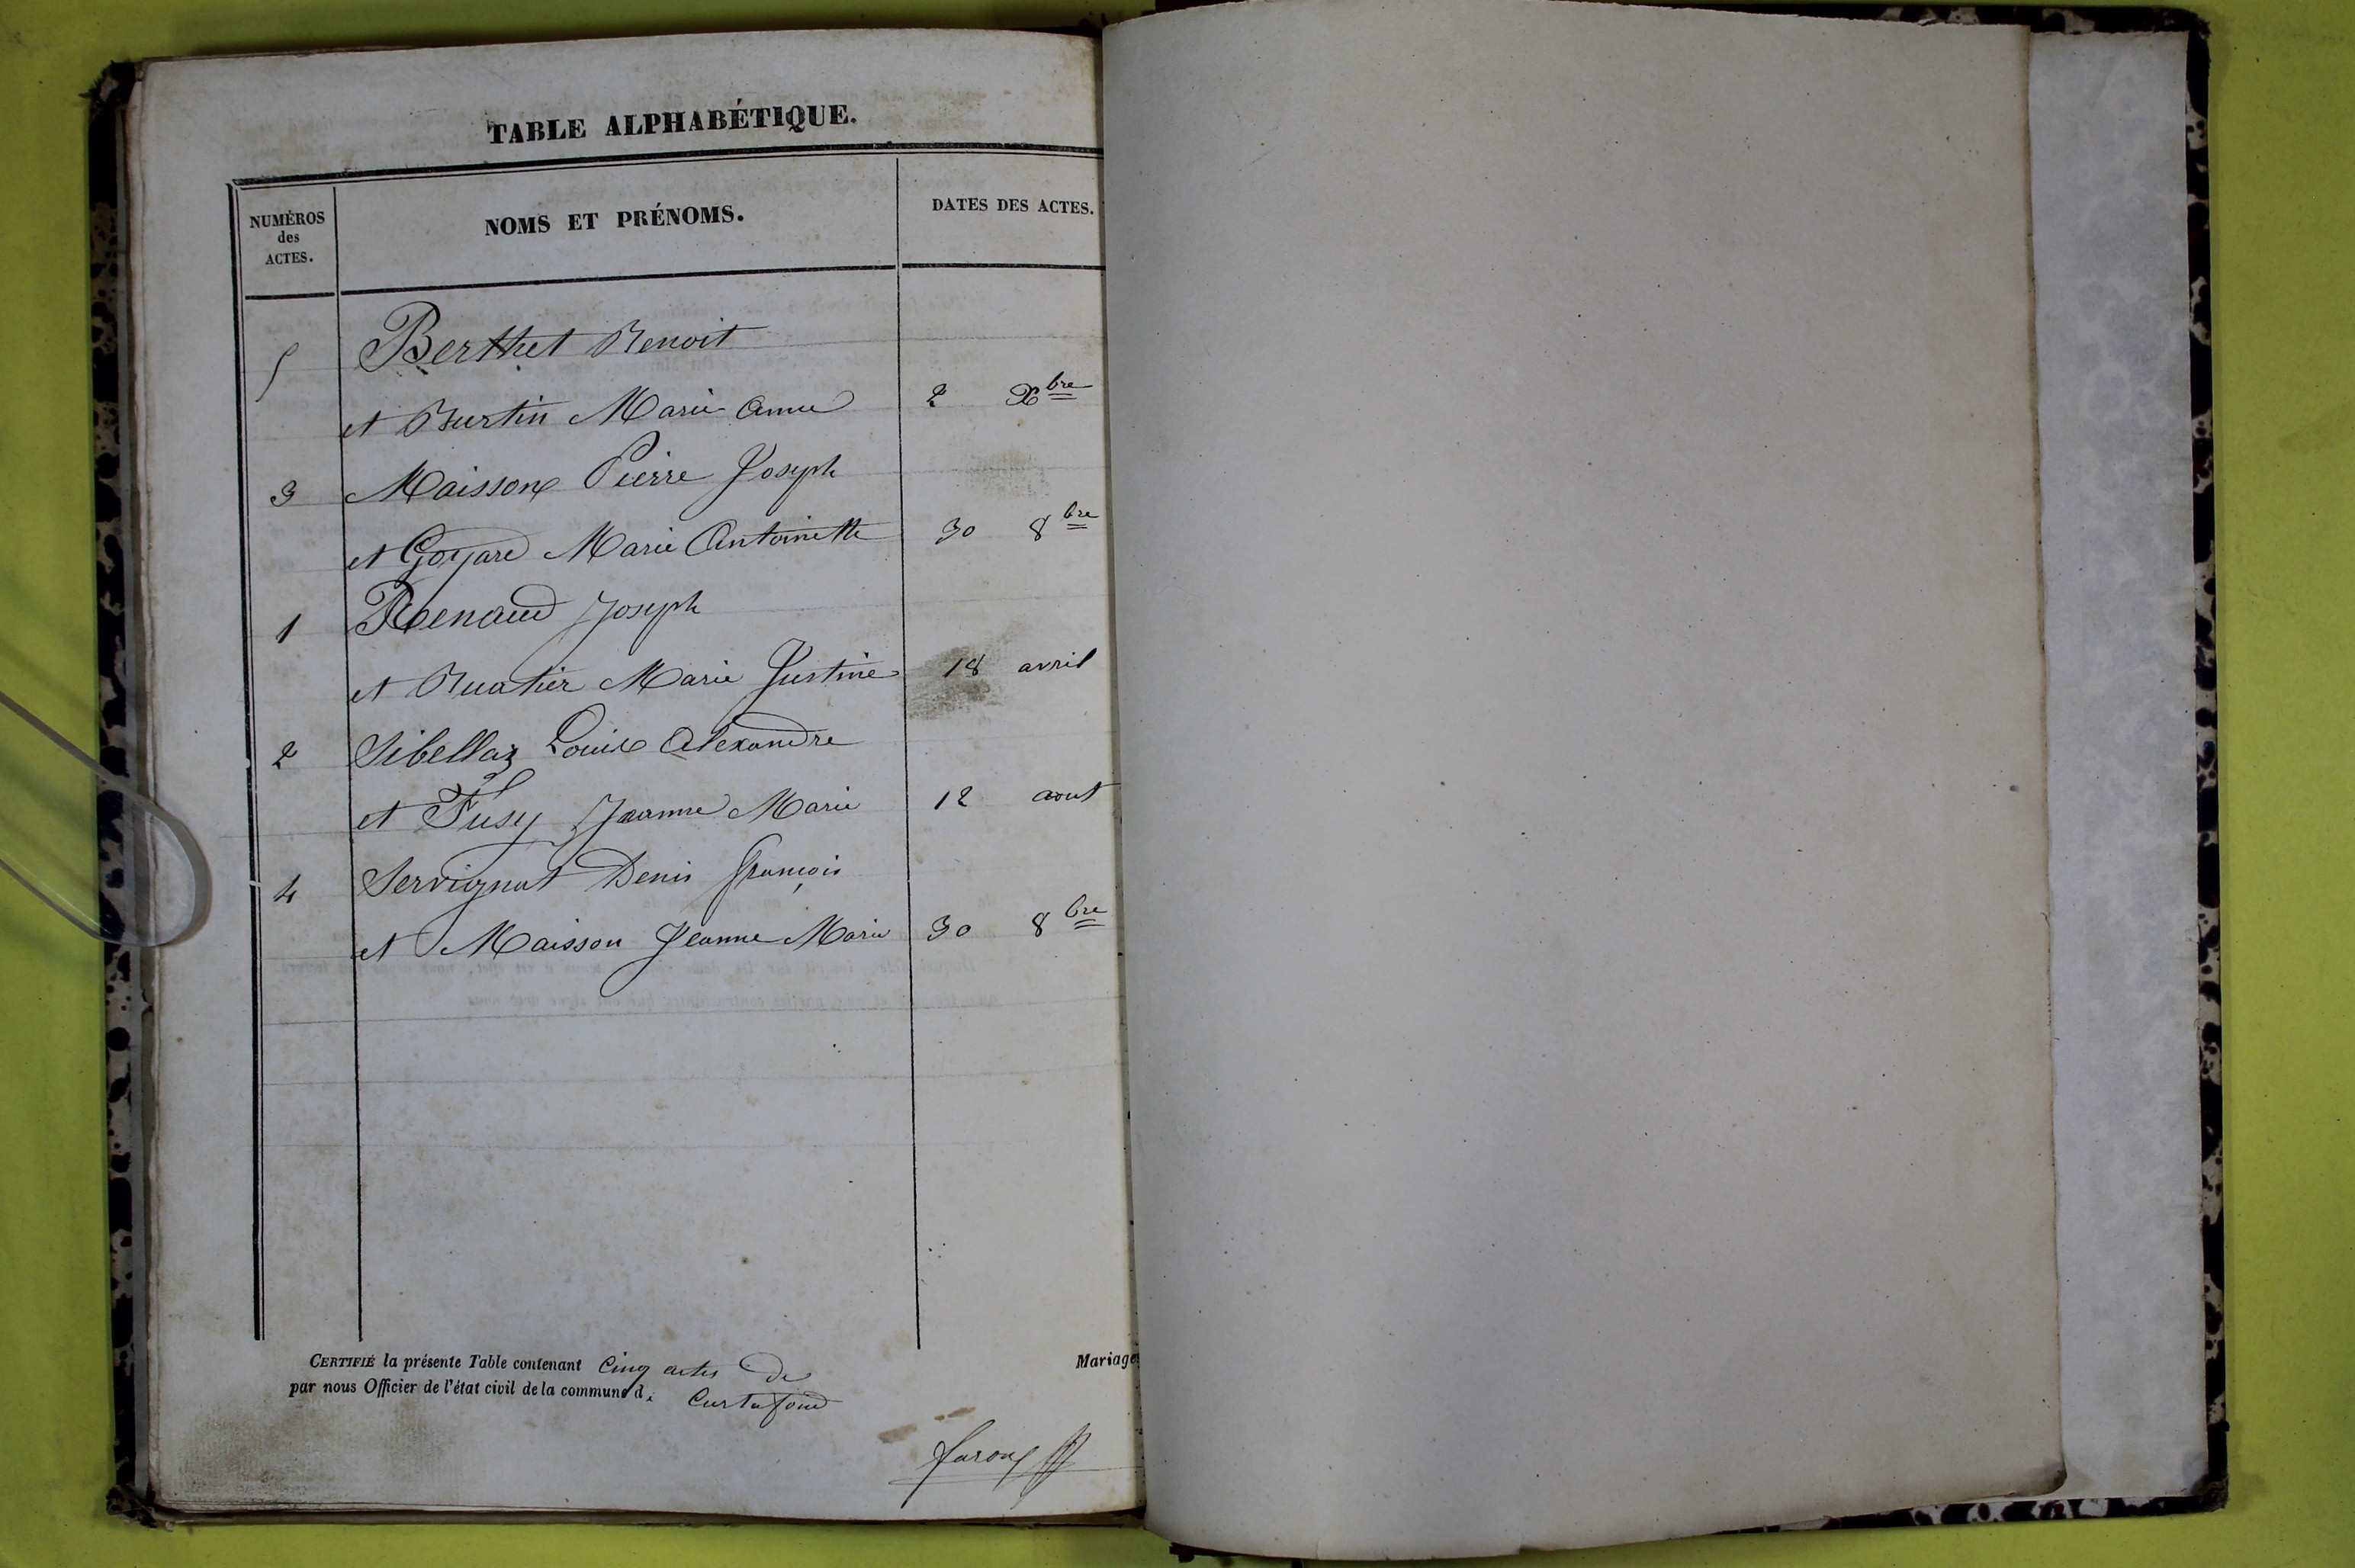 TABLE ALPHABÉTIQUE.
NUMÉROS des ACTES.
NOMS ET PRÉNOMS.
DATES DES ACTES.
5 Berthet Benoit
et Burtin Marie Anne 2 Xbre
3 Maisson Pierre Joseph
et Goyard Marie Antoinette 30 8bre
1 Renaud Joseph
et Buatier Marie Justine 18 avril
2 Sibellas Louis Alexandre
et Fusy Jeanne Marie 12 aout
4 Servignat Denis François
et Maisson Jeanne Marie 30 8bre
CERTIFIÉ la présente Table contenant Cinq actes de Mariage
par nous Officier de l'état civil de la commune d. Curtafond